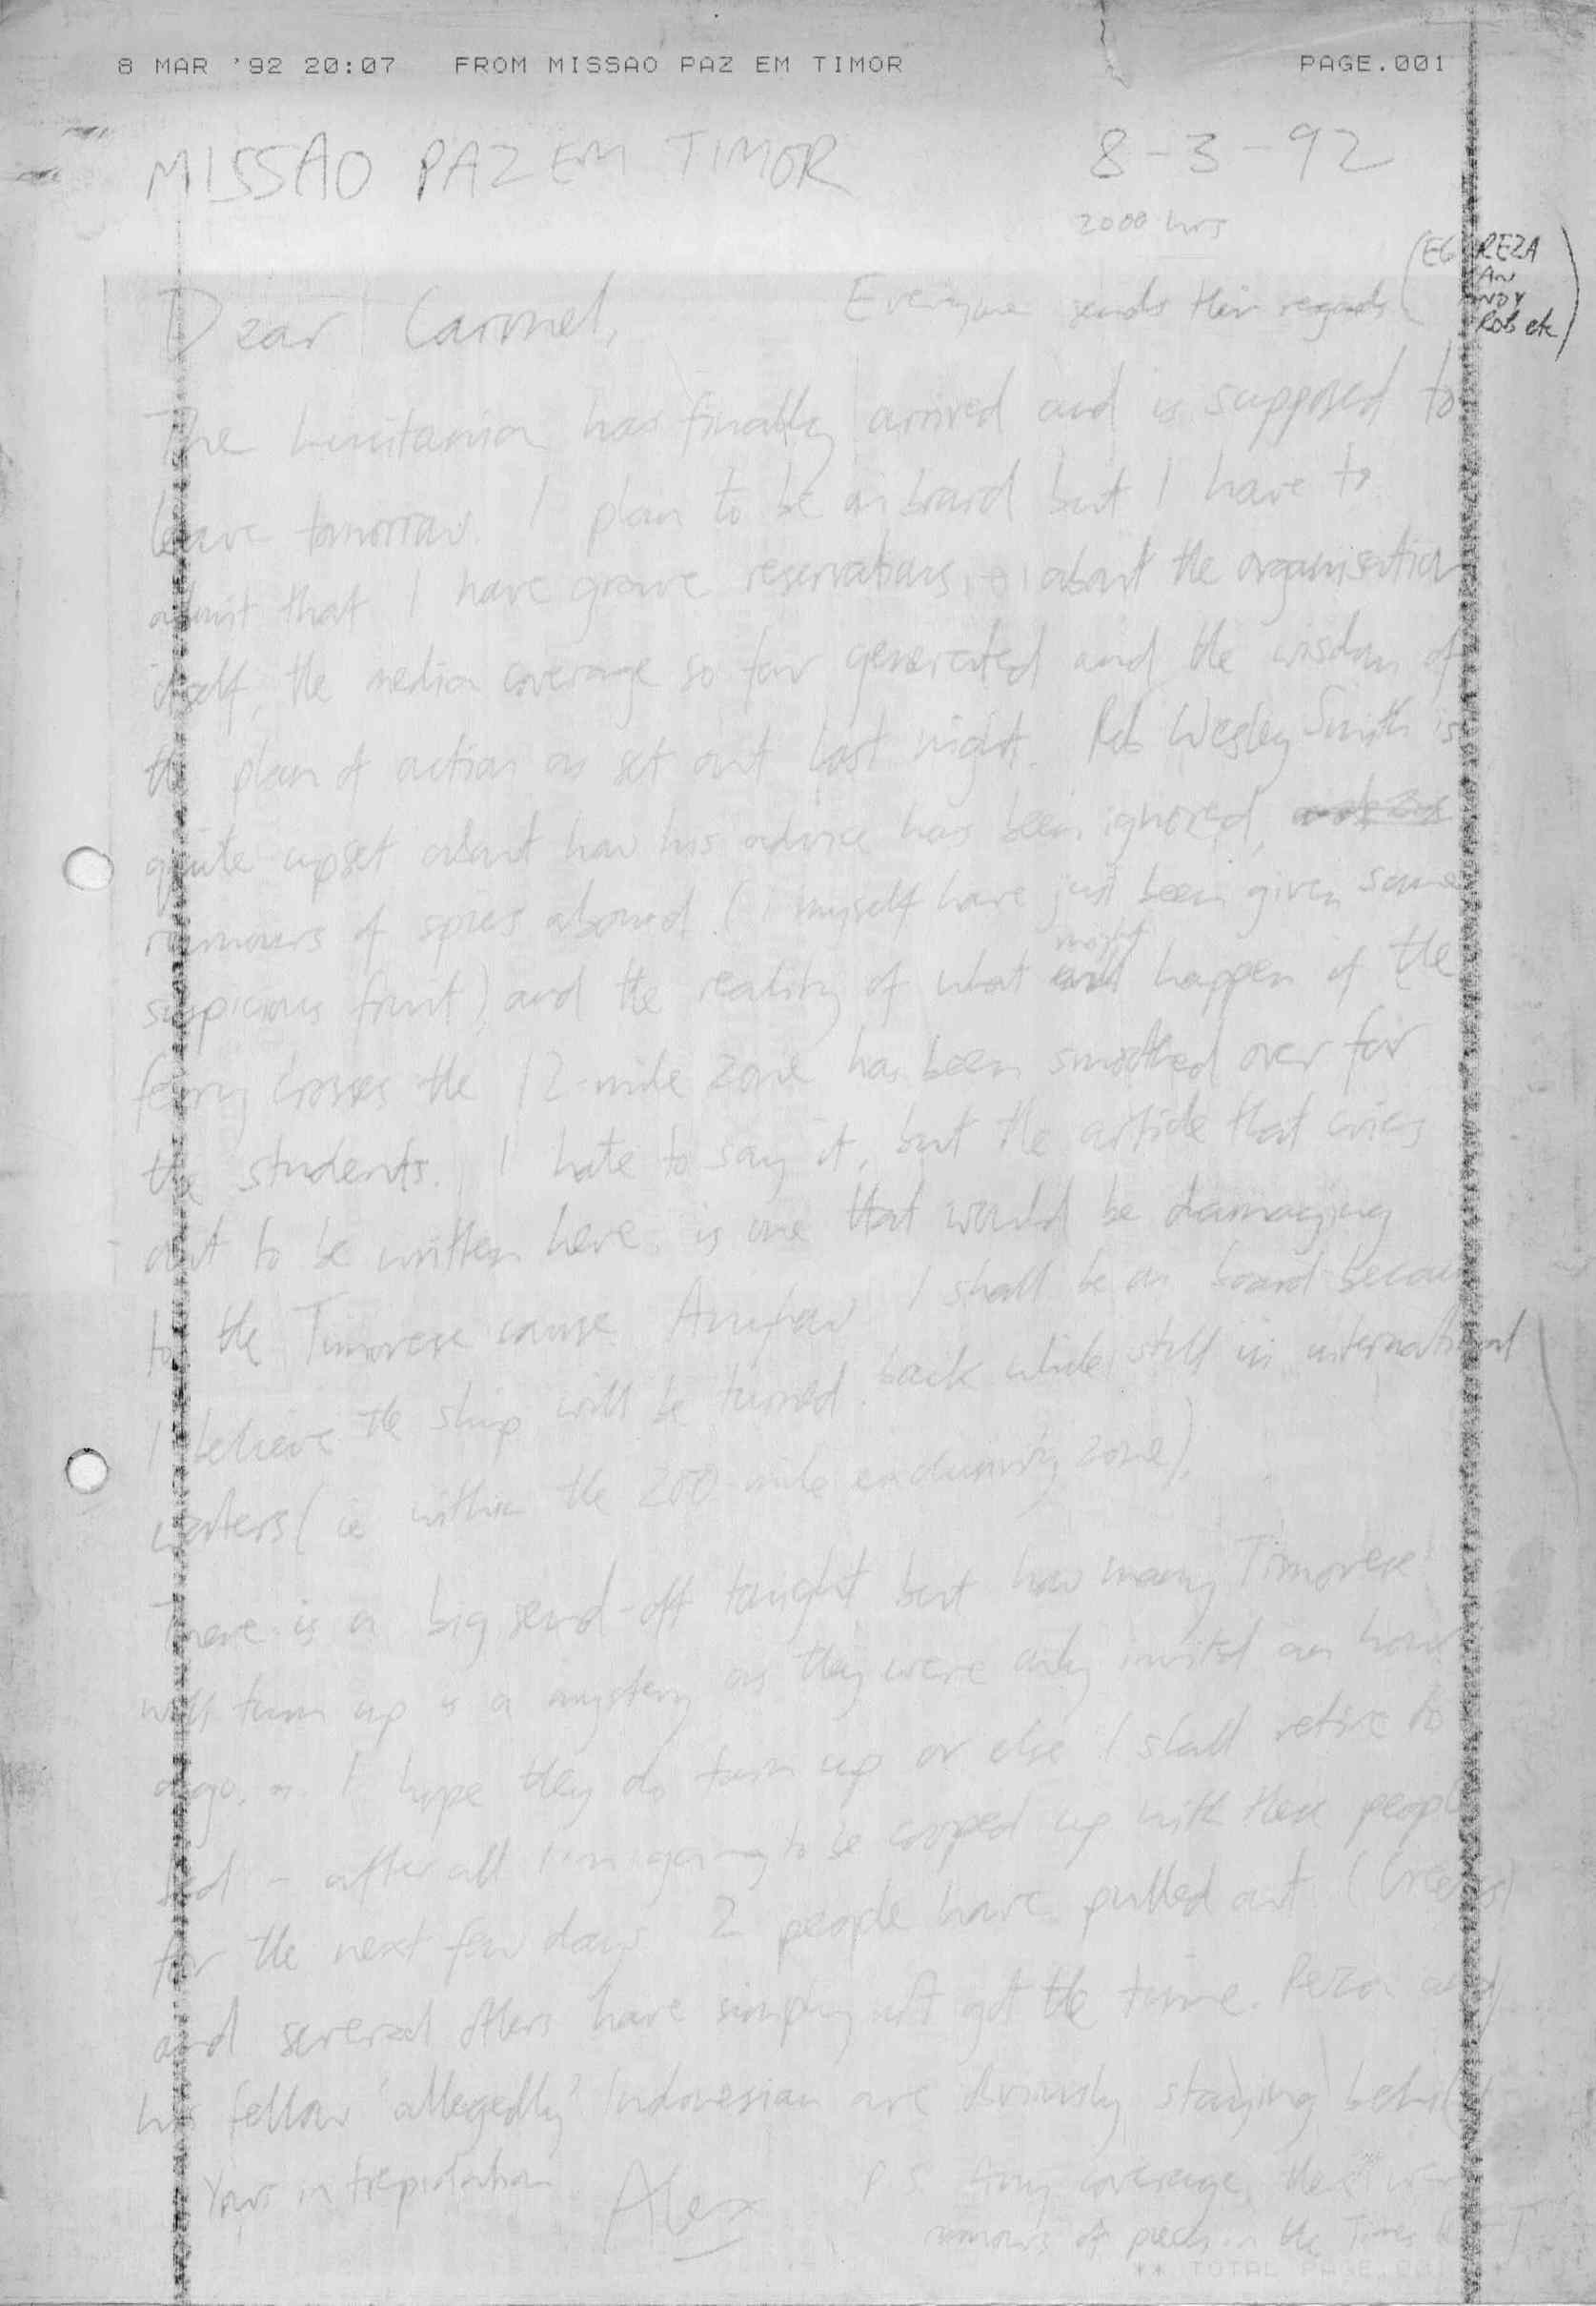 8 MAR '92 20:07 FROM MISSAO PAZ EM TIMOR PAGE.001
MISSAO PAZ EM TIMOR 8-3-92
2000 hrs
(EG REZA
IAN
ANDY
ROB etc)
Dear Carmel, Everyone sends their regards
The Lusitania has finally arrived and is supposed to
leave tomorrow. I plan to be on board but I have to
admit that I have grave reservations, about the organisation
itself, the media coverage so far generated and the wisdom of
the plan of action as set out last night. Rob Wesley Smith is
quite upset about how his advice has been ignored,
rumours of spies abound (I myself have just been given some
suspicious fruit) and the reality of what might happen if the
ferry crosses the 12-mile zone has been smoothed over for
the students. I hate to say it, but the article that cries
out to be written here is one that would be damaging
to the Timorese cause. Anyhow I shall be on board because
I believe the ship will be turned back while still in international
waters (ie within the 200-mile zone).
There is a big send-off tonight but how many Timorese
will turn up is a mystery as they were only invited an hour
ago. I hope they do turn up or else I shall retire to
bed - after all I am going to be cooped up with these people
for the next few days. 2 people have pulled out (Greeks)
and several others have simply not got the time. Reza and
his fellow 'allegedly' Indonesian are obviously staying behind
Yours in trepidation Alex
P.S. Any coverage, there were
rumours of piece in the Times
** TOTAL PAGE.001